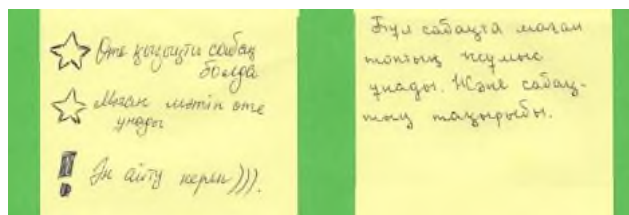 Өте қызықты сабақ
болда
Маған мәтін өте
ұнады
Ән айту керек))).
Бұл сабақта маған
топтық жұмыс
ұнады. Және сабақ-
тың тақырыбы.